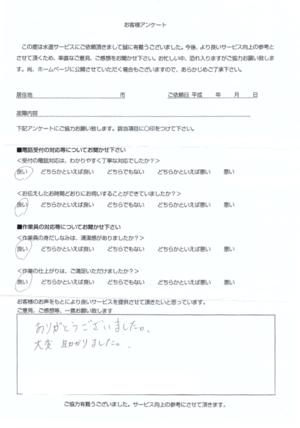 お客様アンケート
この度は水道サービスにご依頼頂きまして誠に有難うございました。今後、より良いサービス向上の参考と
させて頂くため、率直なご意見、ご感想をお聞かせ下さい。お忙しい中、恐れ入りますがご協力お願い致しま
す。尚、ホームページに公開させていただく場合もございますので、あらかじめご了承下さい。
居住地 市 ご依頼日 平成 年 月 日
故障内容
下記アンケートにご協力お願い致します。該当項目に〇印をつけて下さい。
■電話受付の対応等についてお聞かせ下さい
<受付の電話対応は、わかりやすく丁寧な対応でしたか?>
良い どちらかといえば良い どちらでもない どちらかといえば悪い 悪い
<お伝えしたお時間どおりにお伺いすることができていましたか?>
良い どちらかといえば良い どちらでもない どちらかといえば悪い 悪い
■作業員の対応等についてお聞かせ下さい
<作業員の身だしなみは、清潔感がありましたか?>
良い どちらかといえば良い どちらでもない どちらかといえば悪い 悪い
<作業の仕上がりは、ご満足いただけましたか?>
良い どちらかといえば良い どちらでもない どちらかといえば悪い 悪い
お客様のお声をもとにより良いサービスを提供させて頂きたいと思っています。
ご意見、ご感想等、一言お願い致します
ありがとうございました。
大変助かりました。
ご協力有難うございました。サービス向上の参考にさせて頂きます。